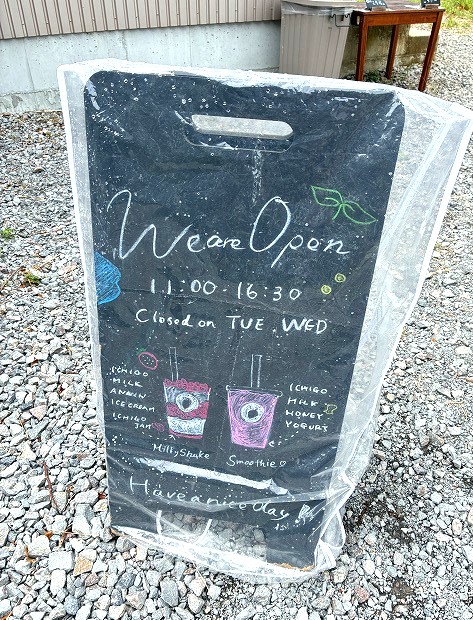 We are Open
11:00 - 16:30
Closed on TUE. WED
ICHIGO
MILK
ANNIN
ICE CREAM
ICHIGO
JAM
MilkyShake
ICHIGO
MILK
HONEY
YOGURT
Smoothie♡
Have a nice day